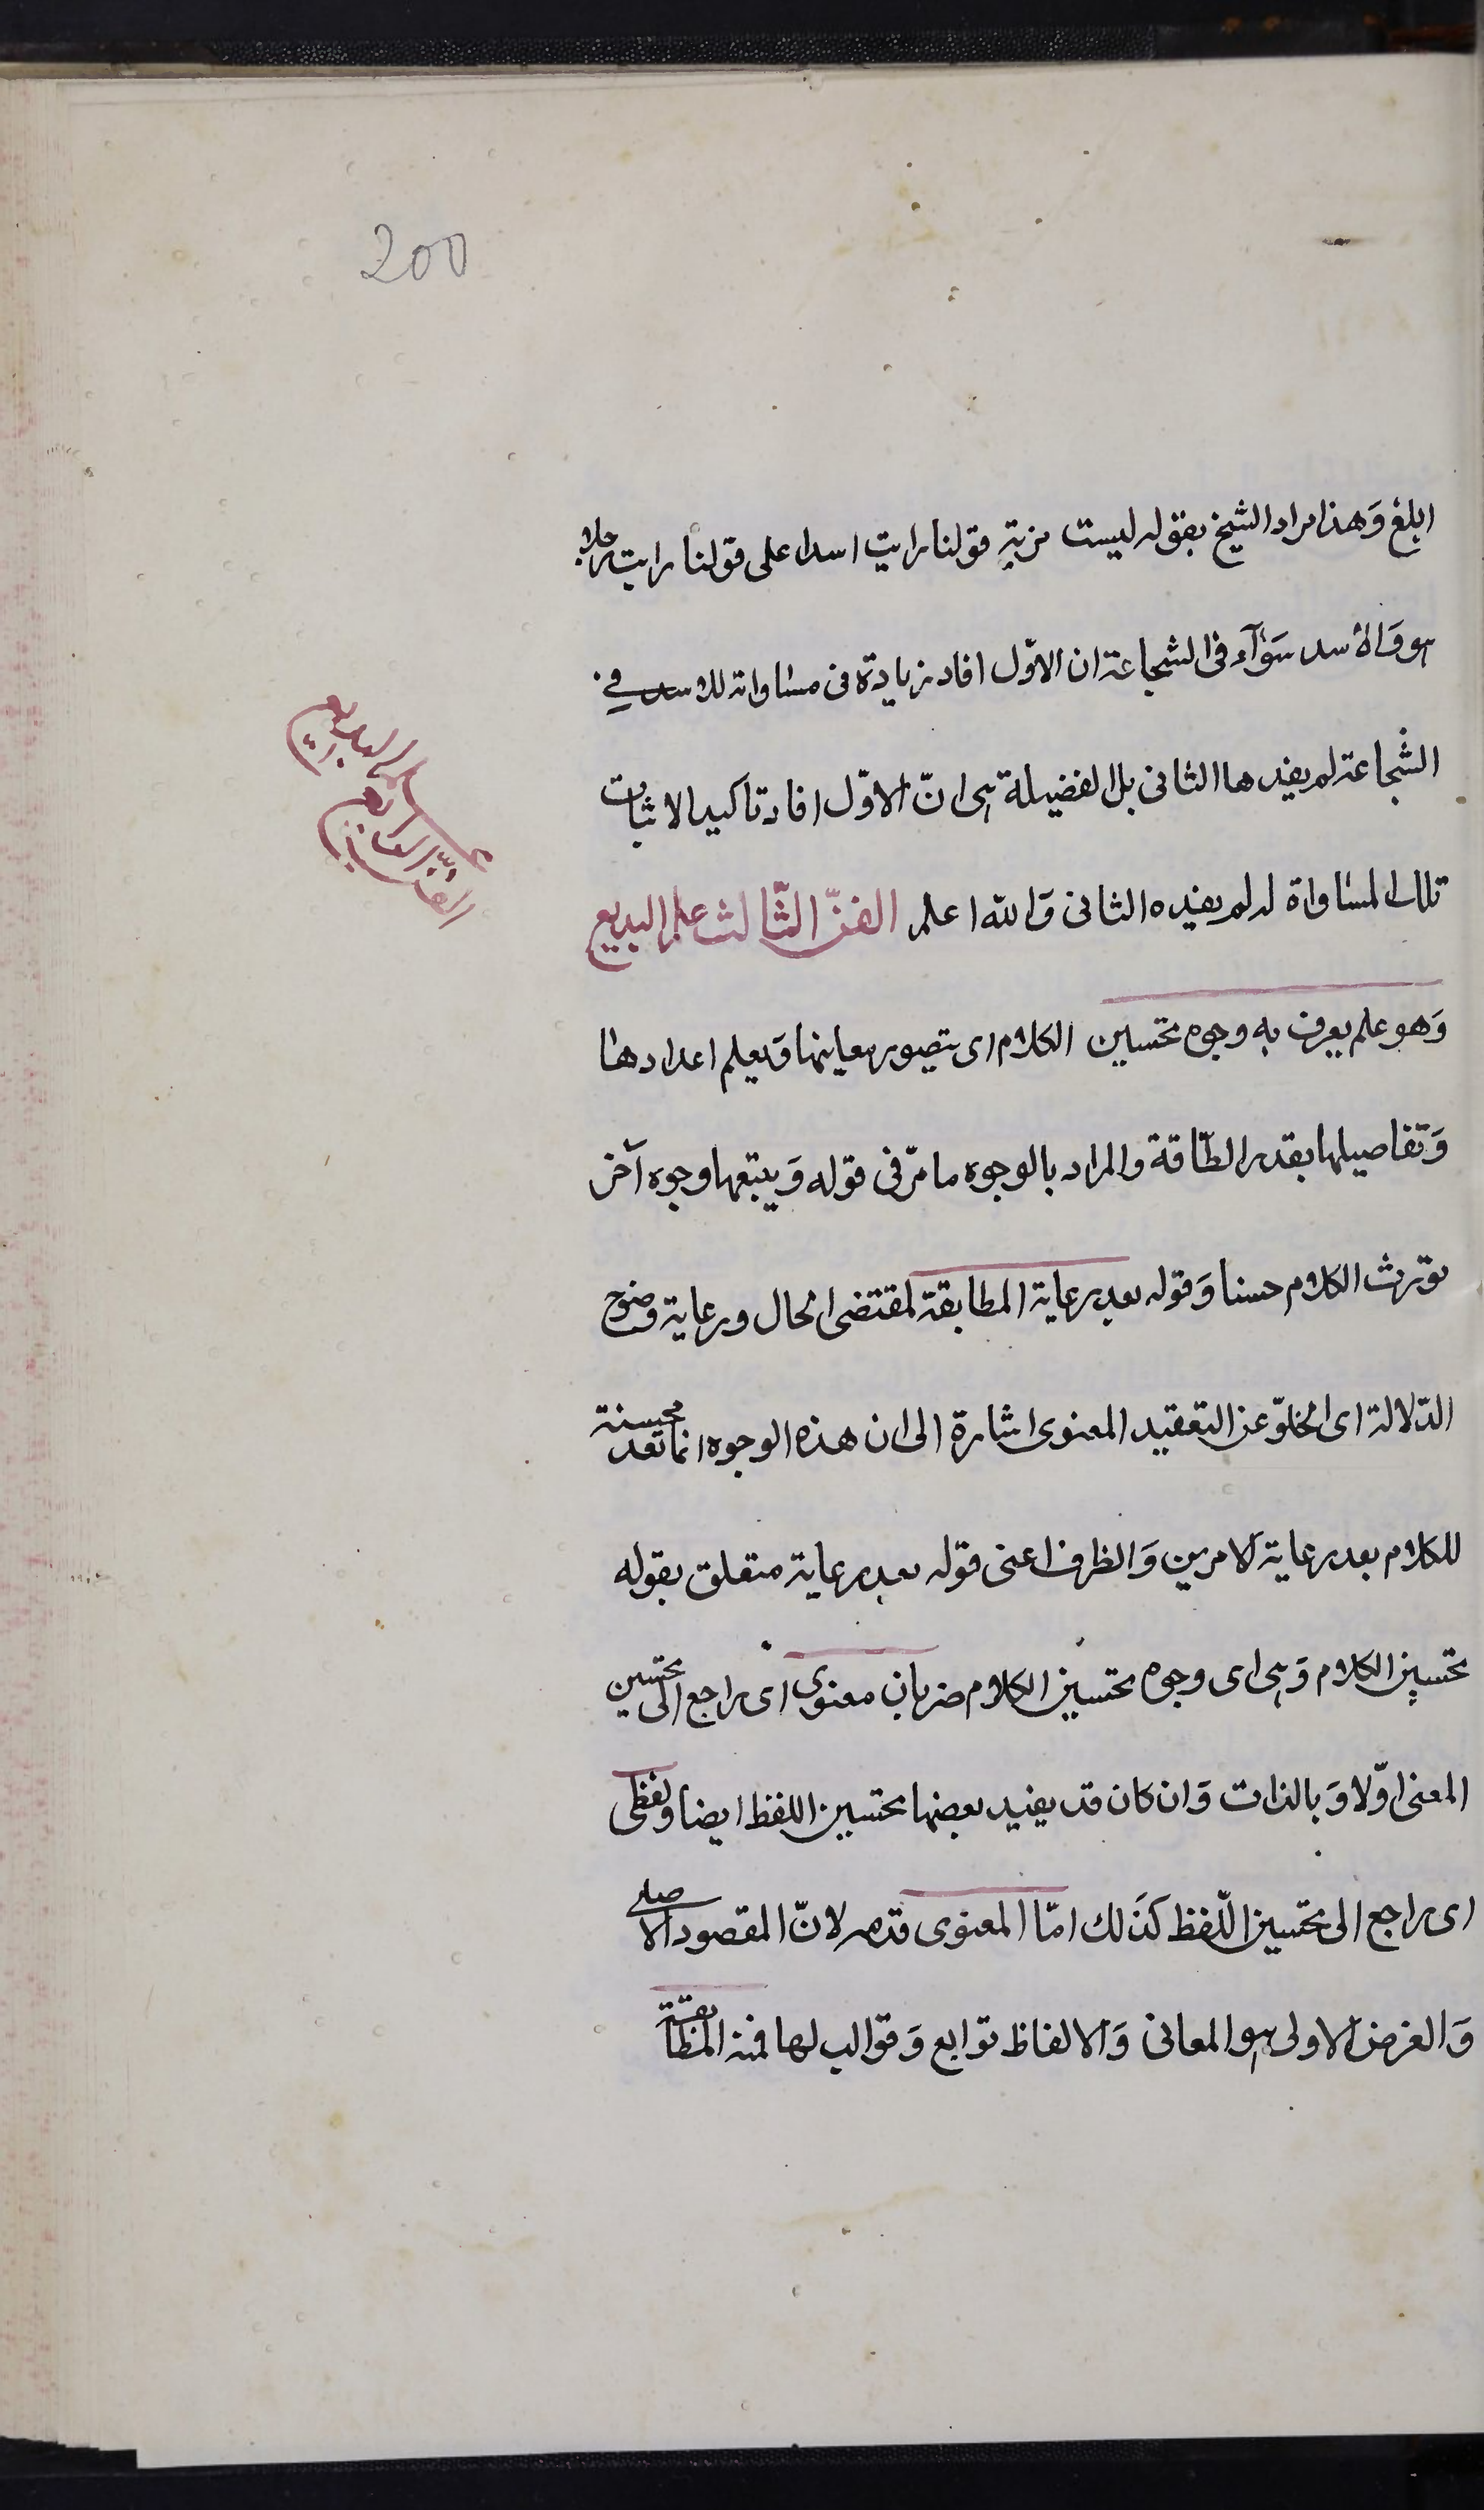 200
ابلغ وَهذا مراد الشيخ بقوله ليست مزية قولنا رايت اسدا على قولنا رايت رجلا
هو وَالاسد سَوَآء فى الشجاعة ان الاوّل افاد زيادة فى مساواته للاسد فى
الشجاعة لم يفدها الثانى بل الفضيلة هى انّ الاوّل افاد تاكيد الاثبات
تلك المساواة له لم يفيده الثانى وَالله اعلم الفنّ الثّالث علم البديع
وَهو علم يعرف به وجوه تحسين الكلام اى يتصور معاينها وَيعلم اعدادها
وَتفاصيلها بقدر الطّاقة والمراد بالوجوه ما مرّ فى قوله وَيتبعها وجوه آخر
تورث الكلام حسنا وَقوله بعد رعاية المطابقة لمقتضى الحال ورعاية وضوح
الدّلالة اى الخلوّ عن التعقيد المعنوى اشارة الى ان هذه الوجوه انما تعد محسنة
للكلام بعد رعاية الامرين وَالظرف اعنى قوله بعد رعاية متعلق بقوله
تحسين الكلام وَهى اى وجوه تحسين الكلام ضربان معنوى اى راجع الى تحسين
المعنى اوّلا وَبالذات وَان كان قد يفيد بعضها تحسين اللفظ ايضا ولفظى
اى راجع الى تحسين اللّفظ كذَلك امّا المعنوى قدمه لانّ المقصود الاصلى
وَالغرض الاولى هو المعانى وَالالفاظ توابع وَقوالب لها فمنه المطابقة
علم البديع